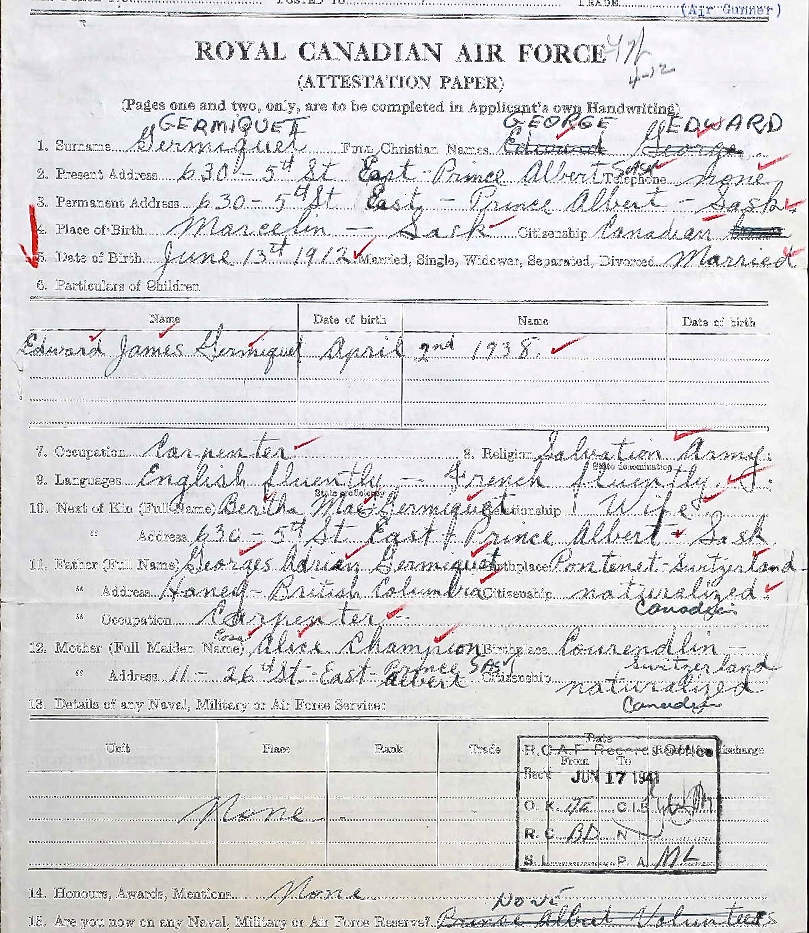 POSTED TO TRADE
(Air Gunner)
ROYAL CANADIAN AIR FORCE
(ATTESTATION PAPER)
(Pages one and two, only, are to be completed in Applicant's own Handwriting)
GERMIQUET GEORGE EDWARD
1. Surname Germiquet Christian Names Edward George
2. Present Address 630 - 5th St East - Prince Albert Sask Telephone none
3. Permanent Address 630 - 5th St East - Prince Albert - Sask
4. Place of Birth Marcelin - Sask Citizenship Canadian
5. Date of Birth June 13th 1912 Married, Single, Widower, Separated, Divorced Married
6. Particulars of Children
Name Date of birth Name Date of birth
Edward James Germiquet April 2nd 1938.
7. Occupation Carpenter 8. Religion Salvation Army.
State denomination
9. Languages English fluently - French fluently
State proficiency
10. Next of Kin (Full Name) Bertha Mae Germiquet Relationship Wife
" Address 630 - 5th St East Prince Albert - Sask
11. Father (Full Name) Georges Adrian Germiquet Birthplace Pontenet - Switzerland
" Address Haney - British Columbia Citizenship naturalized
Canadian
" Occupation Carpenter
12. Mother (Full Maiden Name) Alice Champion Birthplace Courendlin -
Switzerland
" Address 11 - 26th St - East - Prince Albert Sask Citizenship naturalized
Canadian
13. Details of any Naval, Military or Air Force Service:
Unit Place Rank Trade Date From To Discharge
R.C.A.F Records Office
Rec'd JUN 17 1941
O.K. C.I.B
R.C. BD N
S.I. P.A. ML
None
14. Honours, Awards, Mentions None
NONE
15. Are you now on any Naval, Military or Air Force Reserve? Prince Albert Volunteers